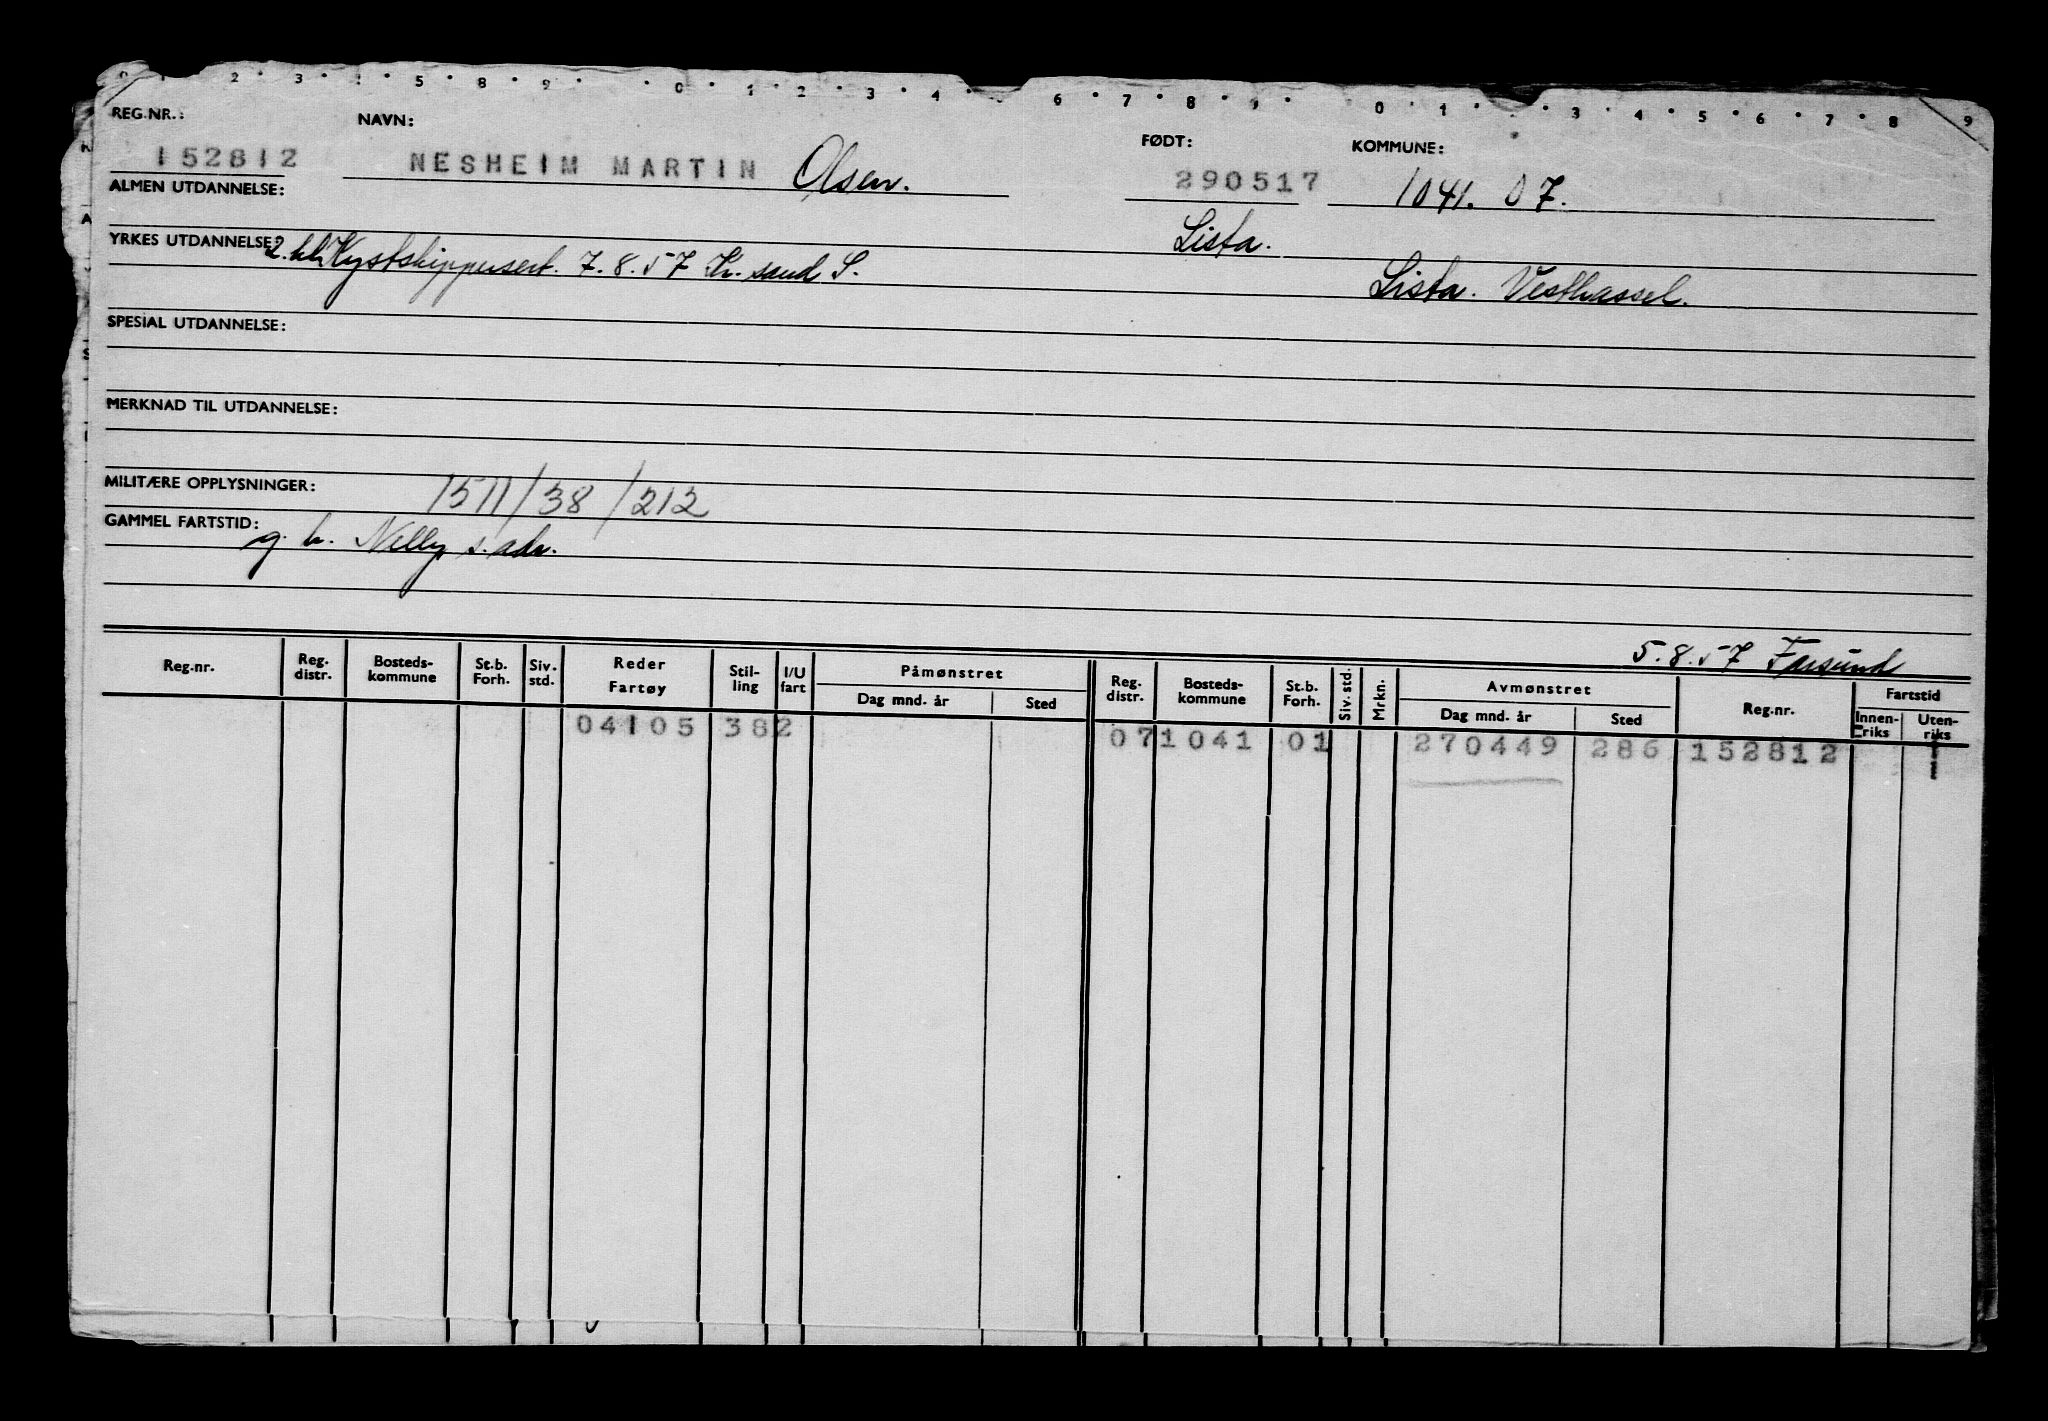 2 3 5 8 9 0 1 2 3 4 6 7 8 9 0 1 3 4 5 6 7 8 9
REG.NR.: NAVN: FØDT: KOMMUNE:
152812 NESHEIM MARTIN Olsen. 290517 1041. 07.
ALMEN UTDANNELSE:
Lista.
YRKES UTDANNELSE: 2. kl. Kystskippersert. 7.8.57 Kr.sand S.
Lista. Vesthassel.
SPESIAL UTDANNELSE:
MERKNAD TIL UTDANNELSE:
MILITÆRE OPPLYSNINGER: 1511/38/212
GAMMEL FARTSTID: g. h. Nelly s. adr.
5.8.57 Farsund
Reg.nr. Reg. distr. Bosteds-kommune St.b. Forh. Siv. std. Reder Fartøy Stil-ling I/U fart Påmønstret Dag mnd. år Sted Reg. distr. Bosteds-kommune St.b. Forh. Siv. std. Mrkn. Avmønstret Dag mnd. år Sted Reg.nr. Fartstid Innen-riks Uten-riks
04105 382 07 1041 01 270449 286 152812